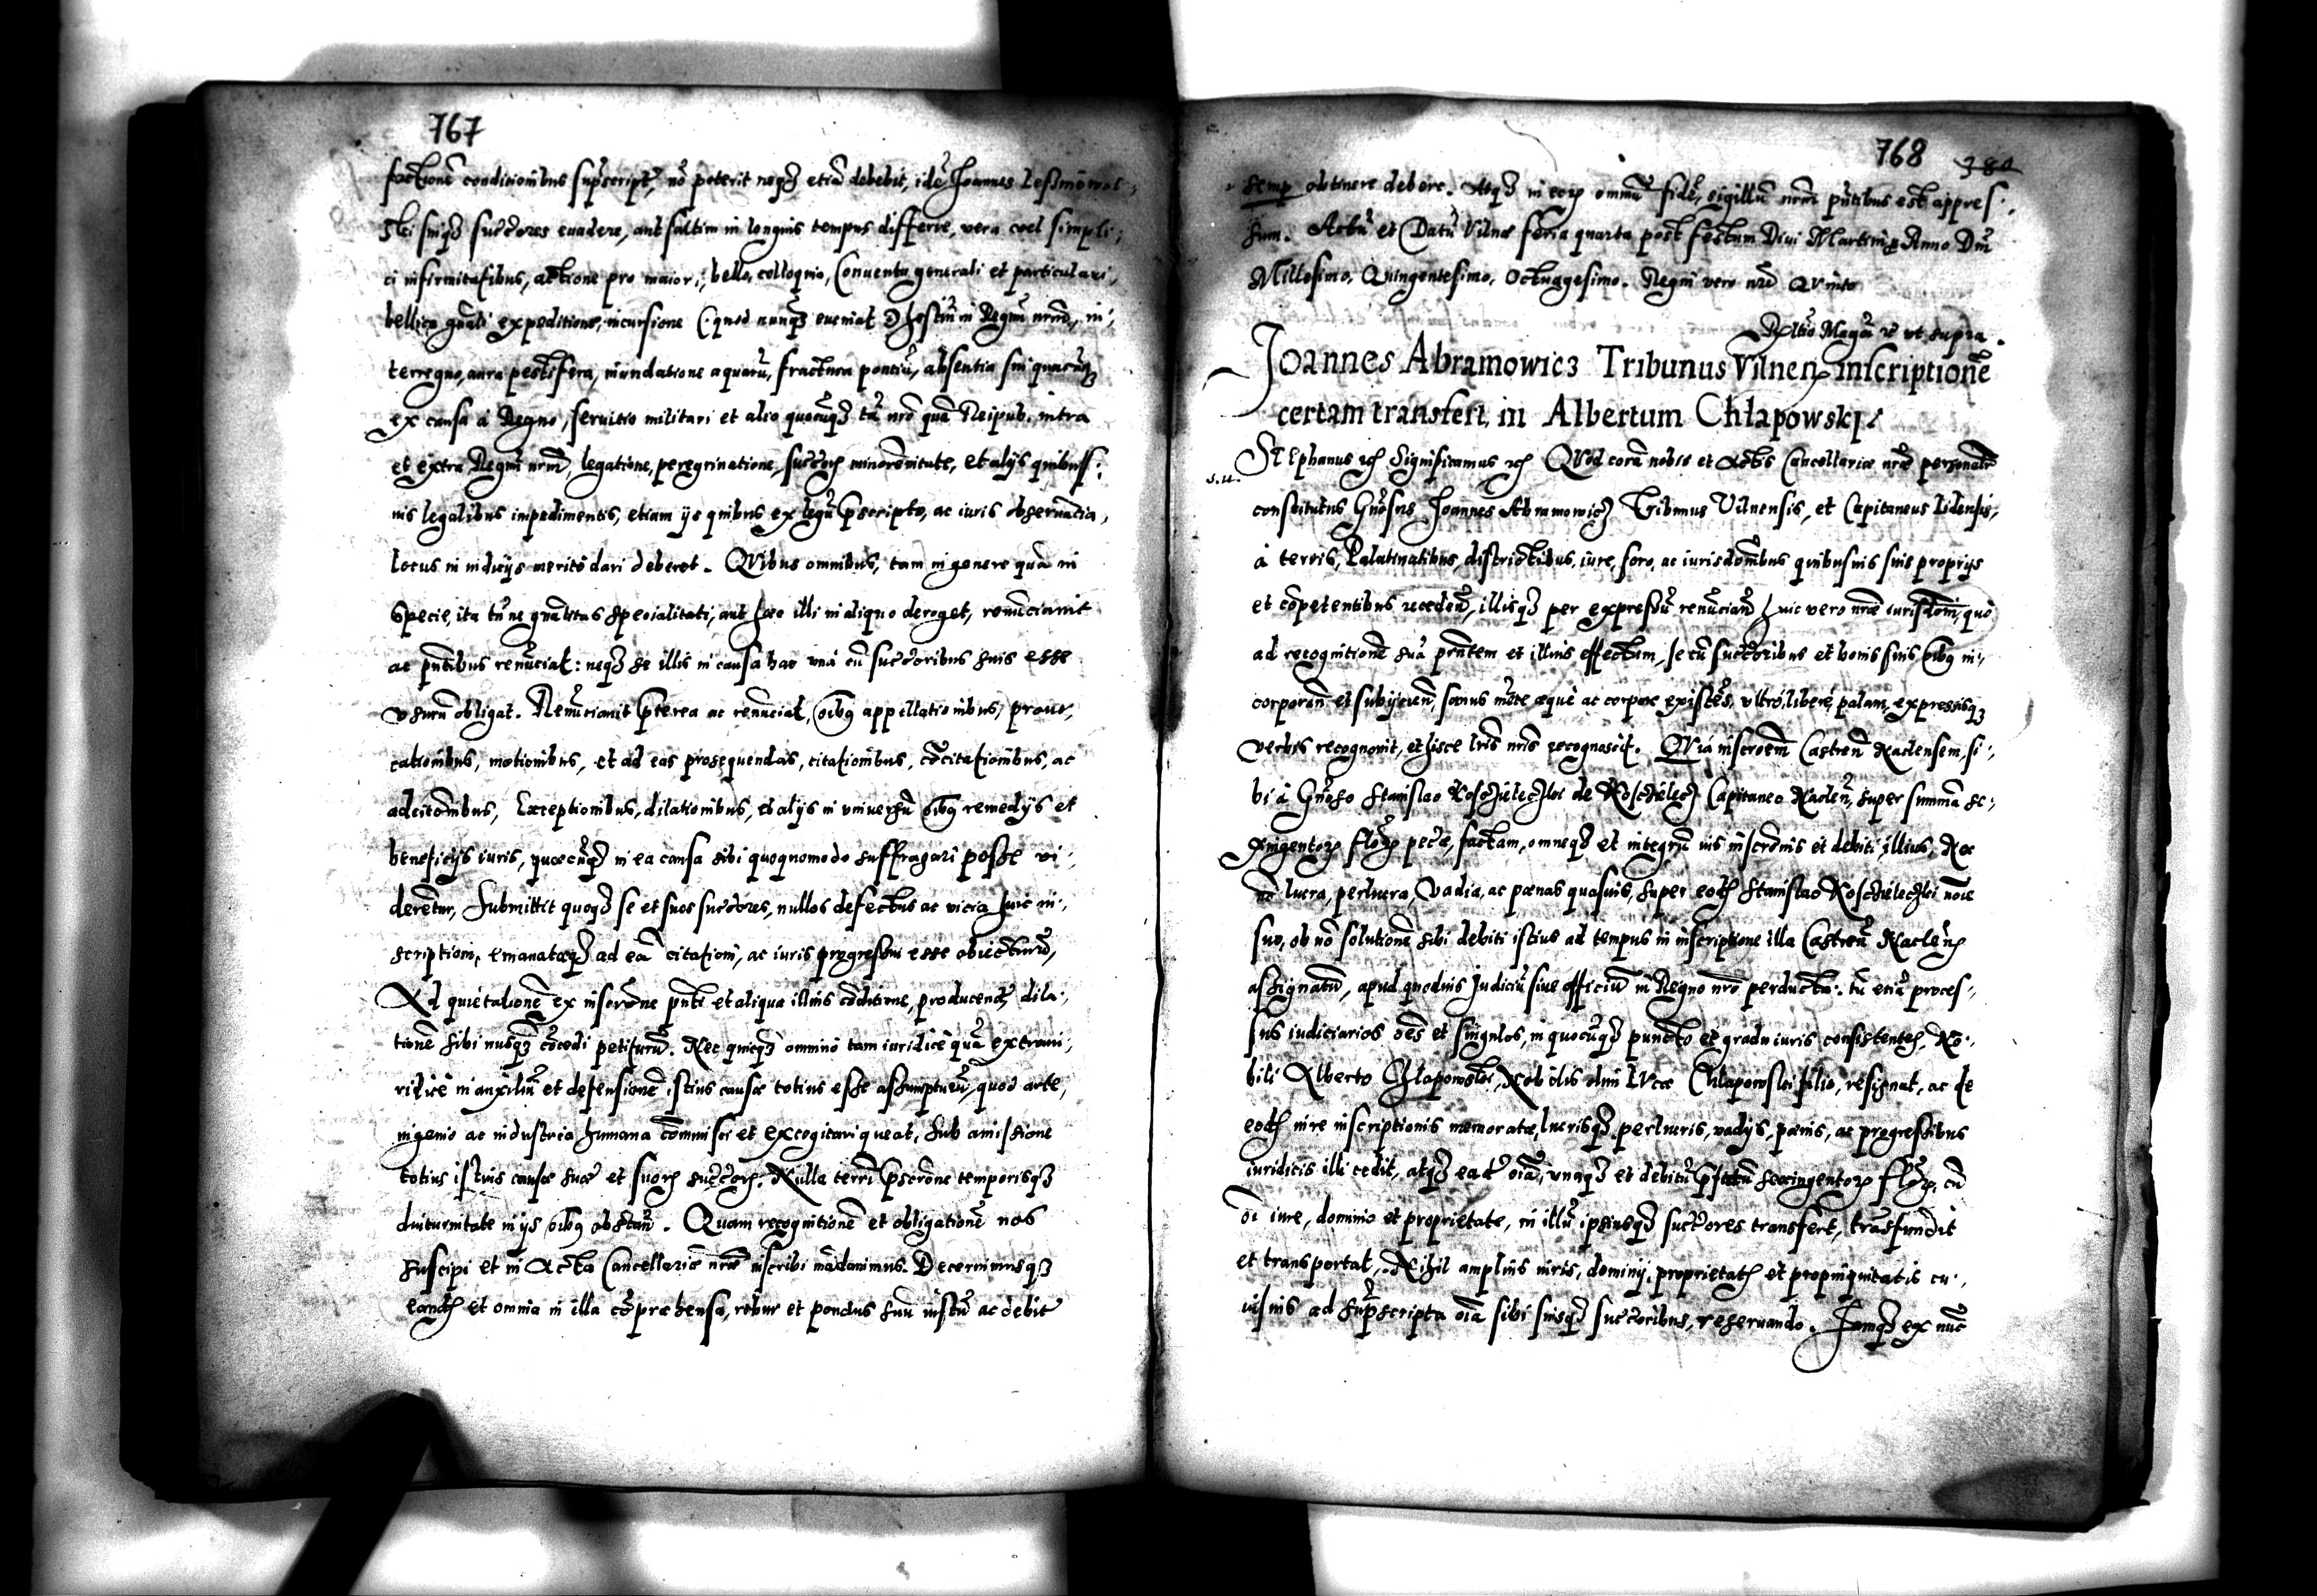 767
factionē conditionibus supscriptꝭ, nō poterit neqȝ etiā debebit, idē Joannes Lesznowol-
ski suiqȝ succ̄ores euadere, aut saltim in longius tempus differre, vera vel simpli-
ci infirmitatibus, actione pro maiori, bello, colloquio, Conuentu generali et particulari,
bellica gnāli expeditione, incursione (quod nunqȝ eueniat) hostiū in Regnū nrm̄, in-
terregno, aura pestifera, inundatione aquarū, fractura pontiū, absentia sui quacūqȝ
ex causa à Regno, seruitio militari et alio quocūqȝ tā nrō quā Reipub. intra
et extra Regnū nrm̄, legatione, peregrinatione, succ̄orꝭ minorēnitate, et alijs quibuss-
uis legalibus impedimentis, etiam ijs quibus ex legū p̄scripto, ac iuris obseruātia,
locus in iudicijs meritò dari deberet. Quibus omnibus, tam in genere quā in
specie, ita tn̄ ne gnālitas specialitati, aut haec illi in aliquo deroget, renūciauit
ac pn̄tibus renūciat: neqȝ se illis in causa hac vnà cū succ̄oribus suis esse
vsurū obligat. Renūciauit p̄terea ac renūciat, oībꝰ appellationibus, prouo-
cationibus, motionibus, et ad eas prosequendas, citationibus, cōcitationibus, ac
adcitōnibus, Exceptionibus, dilationibus, et alijs in vniuersū oībꝰ remedijs et
beneficijs iuris, quaecūqȝ in ea causa sibi quoquomodo suffragari posse vi-
derētur, Submittit quoqȝ se et suos succ̄ores, nullos defectus ac vicia huic in-
scriptioni, emanataeqȝ ad eā citationi, ac iuris progressui esse obiecturū,
Ad quietationē ex inscrōne pn̄ti et aliqua illius cōditione, producendꝭ dila-
tionē sibi nusqȝ cōcedi petiturū. Nec quicqȝ omninò tam iuridicè quā extraiu-
ridicè in auxiliū et defensionē istius causae totius esse assumpturū, quod arte,
ingenio ac industria humana cōminisci et excogitari queat, sub amissione
totius istius causae suae et suorꝭ succ̄orꝭ. Nulla terrē p̄scrōne temporisqȝ
diuturnitate in ijs oībꝰ obstañ. Quam recognitionē et obligationē nos
suscipi et in Acta Cancellariae nrae inscribi mādauimus. Decernimusqȝ
eandꝭ et omnia in illa cōpraehensa, robur et pondus suū iustū ac debitū
768
380
semp obtinere debere. Atqȝ in eorꝝ omniū fidē, sigillū nrm̄ pn̄tibus est appres-
sum. Actū et Datū Vilnae feria quarta post festum Diui Martini Anno Dn̄i
Millesimo, Quingentesimo, Octuagesimo. Regni vero nrī Quinto
Rltio Magcī &c vt supra.
Joannes Abramowicz Tribunus Vilneñ inscriptionē
certam transfert in Albertum Chłapowskj.
s.u.
Stephanus &c Significamus &c Quod corā nobis et Actis Cancellariae nrae personatr̄
constitutus Gnōsus Joannes Abramowicȝ Tribunus Vilnensis, et Capitaneus Lidensis,
à terris, Palatinatibus, districtibus, iure, foro, ac iurisdōnibus quibusuis suis proprijs
et cōpetentibus recedeñ, illisqȝ per expressū renūciañ huic vero nrae iurisdōni, quò
ad recognitionē suā pn̄tem et illius effectum, se cū succ̄oribus et bonis suis oībꝰ in-
corporañ et subijcieñ, sanus mēte aequè ac corpore existēs, vltrò, liberè, palam, expressisqȝ
verbis recognouit, et hisce lrīs nrīs recognoscit. Quià inscrōem Castreñ Naclensem, si-
bi à Gnōso Stanislao Koscȝieleczki de Koscȝielecȝ Capitaneo Nacleñ, super summā se-
xingentorꝝ florꝝ pec̄iae, factam, omneqȝ et integrū ius inscrōnis et debiti illius, Nec
nō lucra, perlucra, Vadia, ac paenas quasuis, super eodꝭ Stanislao Koscȝieleczki nōie
suo, ob nō solutionē sibi debiti istius ad tempus in inscriptione illa Castreñ Nacleñ
assignatū, apud quoduis Judiciū siue officiū in Regno nrō perducta: tū etiā proces-
sus iudiciarios oēs et singulos, in quocūqȝ puncto et gradu iuris consistentes, No-
bili Alberto Chłapowski, Nobilis olim Lucae Chłapowski filio, resignat, ac de
eodꝭ iure inscriptionis memoratae, lucrisqȝ perlucris, vadijs, paenis, ac progressibus
iuridicis illi cedit, atqȝ eadē oīa, vnaqȝ et debitū p̄fatū sexingentorꝝ florꝝ, cū
oī iure, dominio et proprietate, in illū ipsiusqȝ succ̄ores transfert, trāsfundit
et transportat, Nihil amplius iuris, dominij, proprietatꝭ et propinquitatis cu-
iusuis ad supscripta oīa sibi suisqȝ succ̄oribus, reseruando. Jamqȝ ex nūc